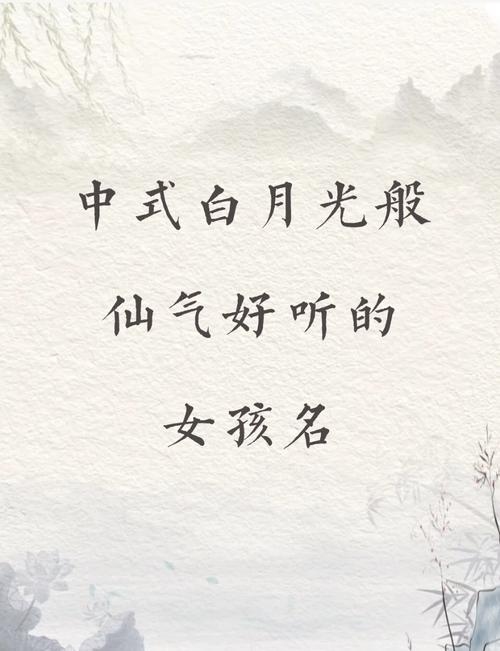 中式白月光般
仙气好听的
女孩名